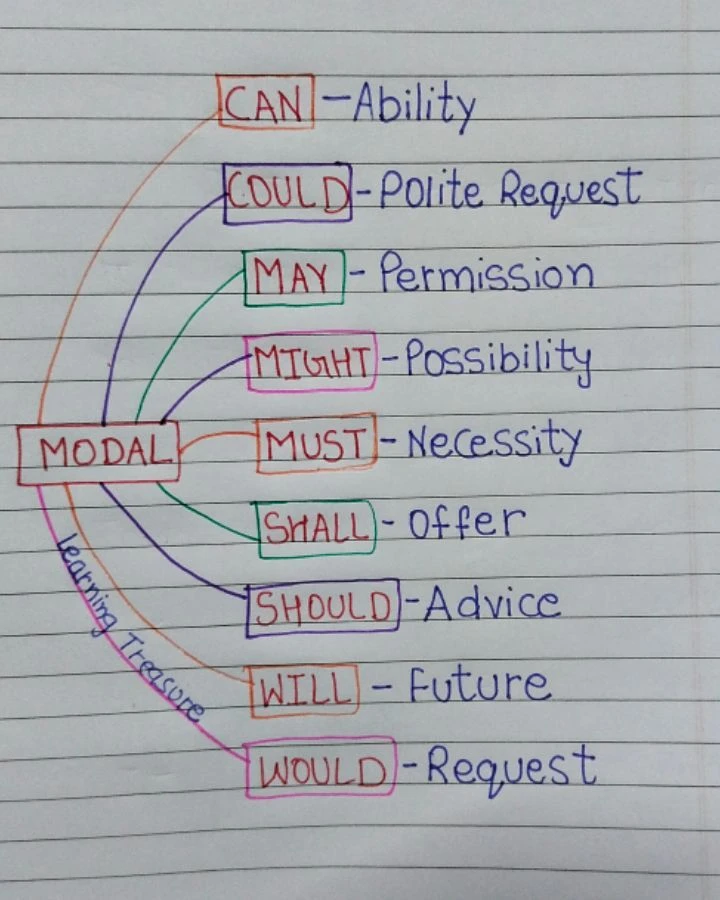 CAN - Ability
COULD - Polite Request
MAY - Permission
MIGHT - Possibility
MODAL
MUST - Necessity
SHALL - Offer
SHOULD - Advice
WILL - Future
WOULD - Request
Learning Treasure